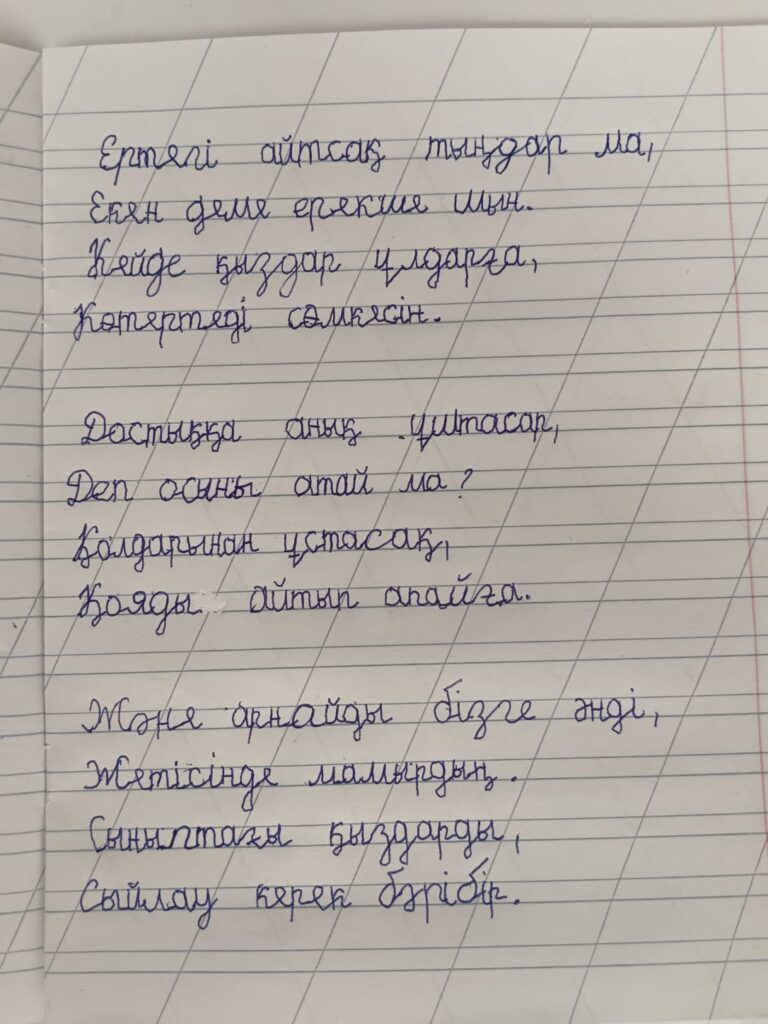 Ертегі айтсақ тыңдар ма,
Екен деме ерекше шын.
Кейде қыздар ұлдарға,
Көтертеді сөмкесін.
Достыққа анық ұштасар,
Деп осыны атай ма?
Қолдарынан ұстасақ,
Қояды айтып апайға.
Және арнайды бізге әнді,
Жетісінде мамырдың.
Сыныптағы қыздарды,
Сыйлау керек бәрібір.